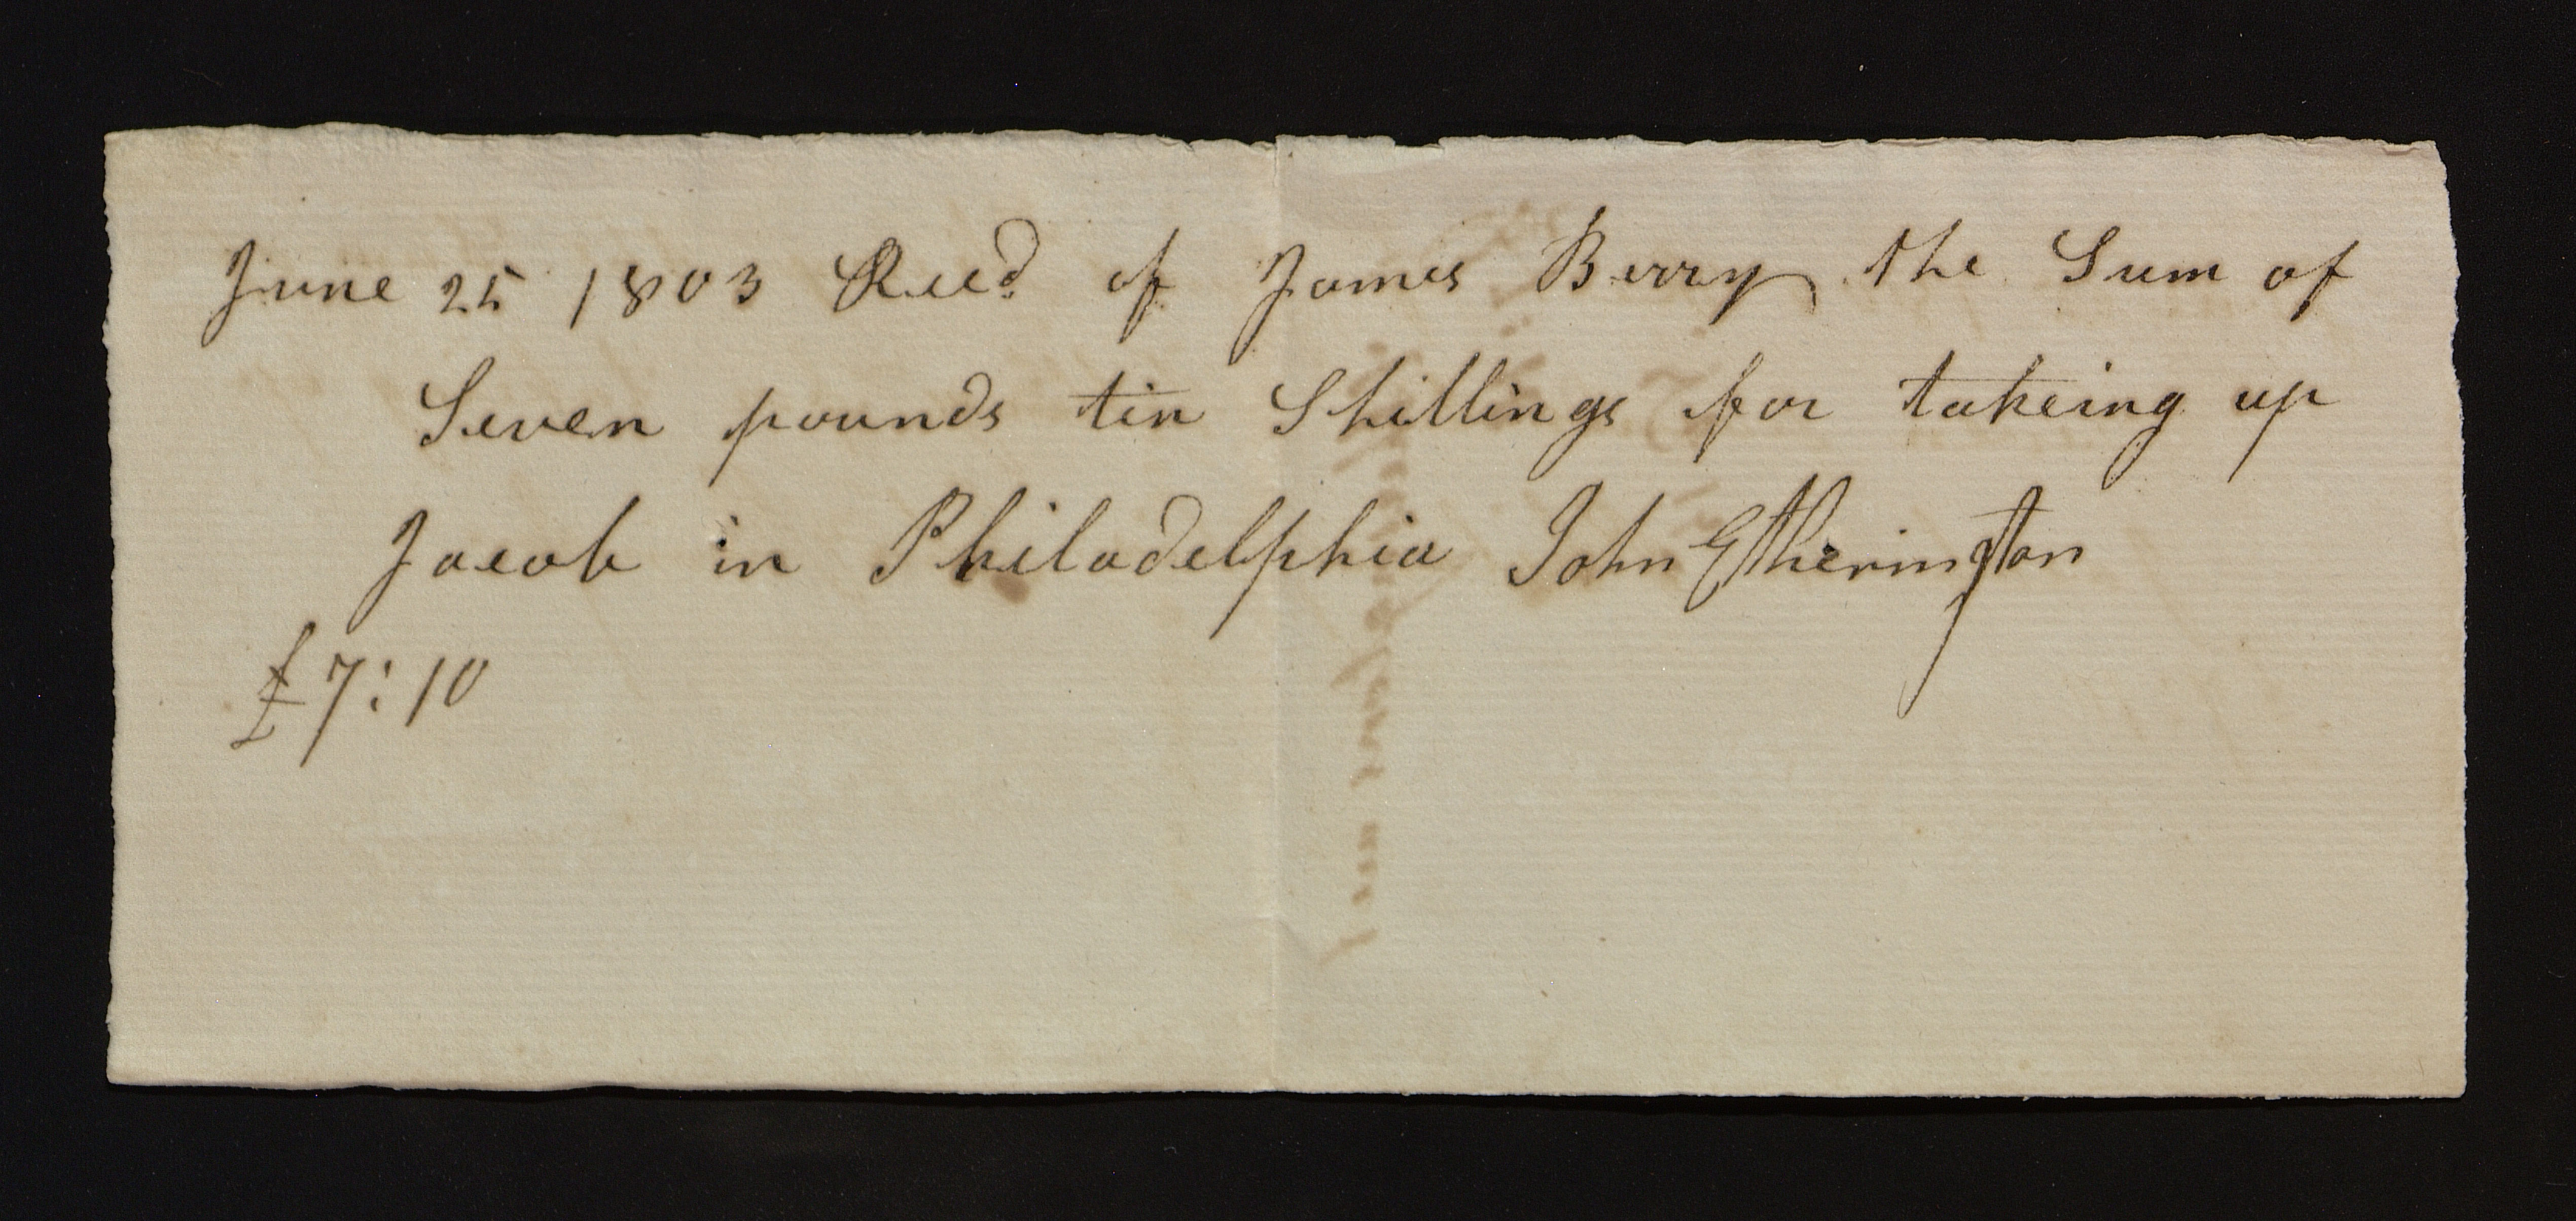 June 25 1803 Recd. of James Berry the Sum of
Seven pounds ten Shillings for takeing up
Jacob in Philadelphia John Etherington
£7:10